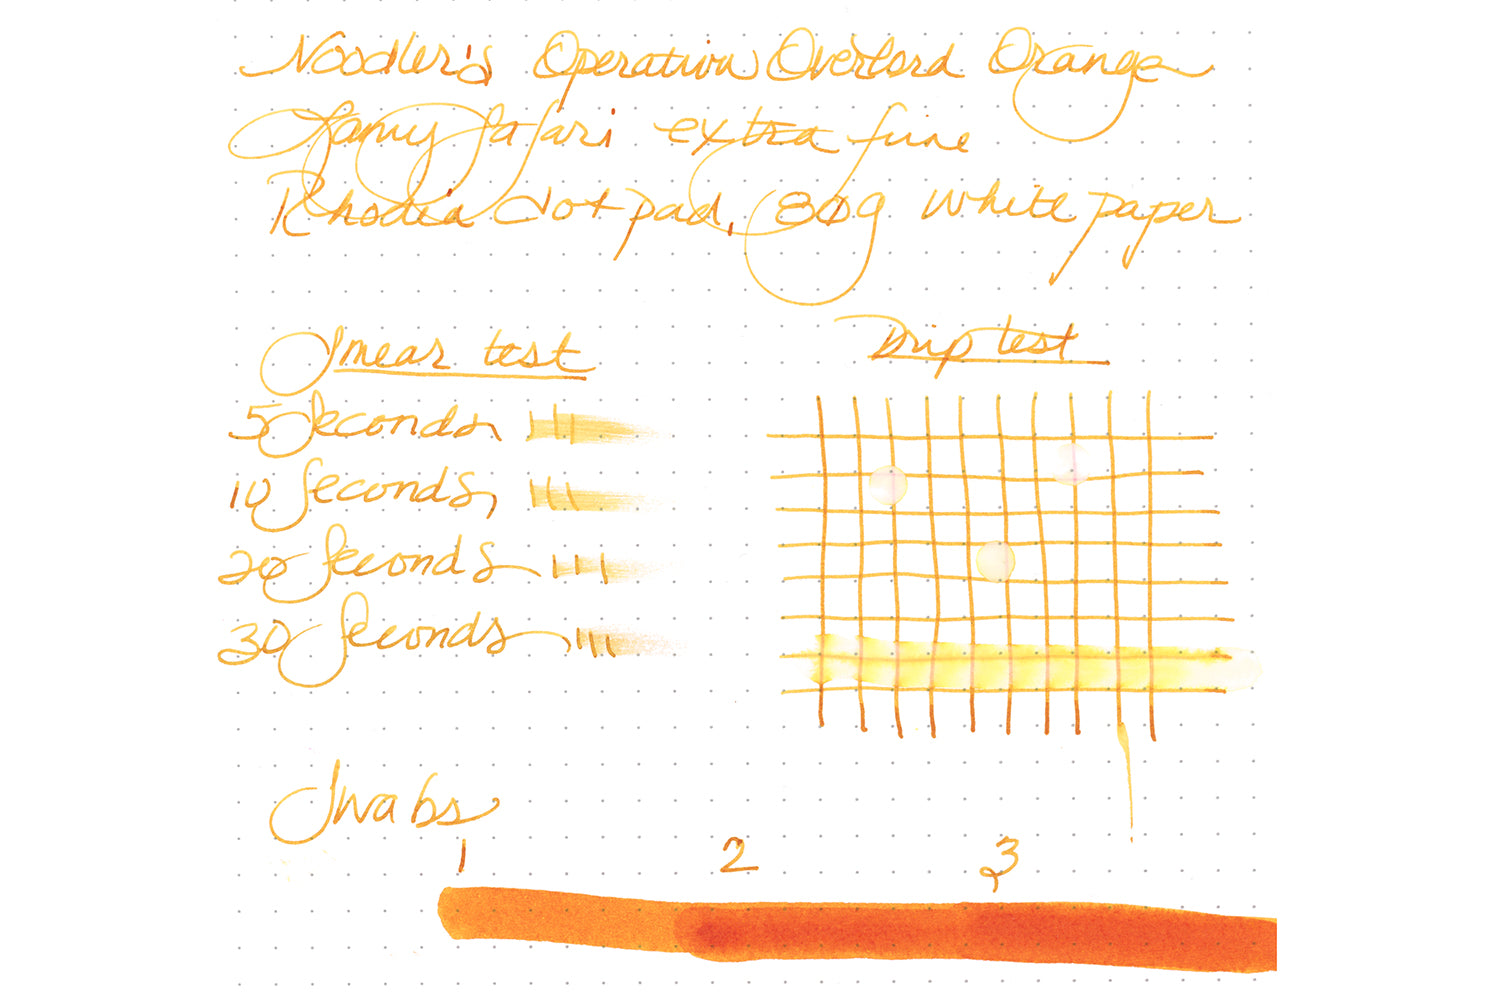 Noodler's Operation Overlord Orange
Lamy Safari extra fine
Rhodia dot pad, 80g white paper
Smear test
5 Seconds,
10 Seconds,
20 Seconds
30 Seconds
Drip test
Swabs
1 2 3